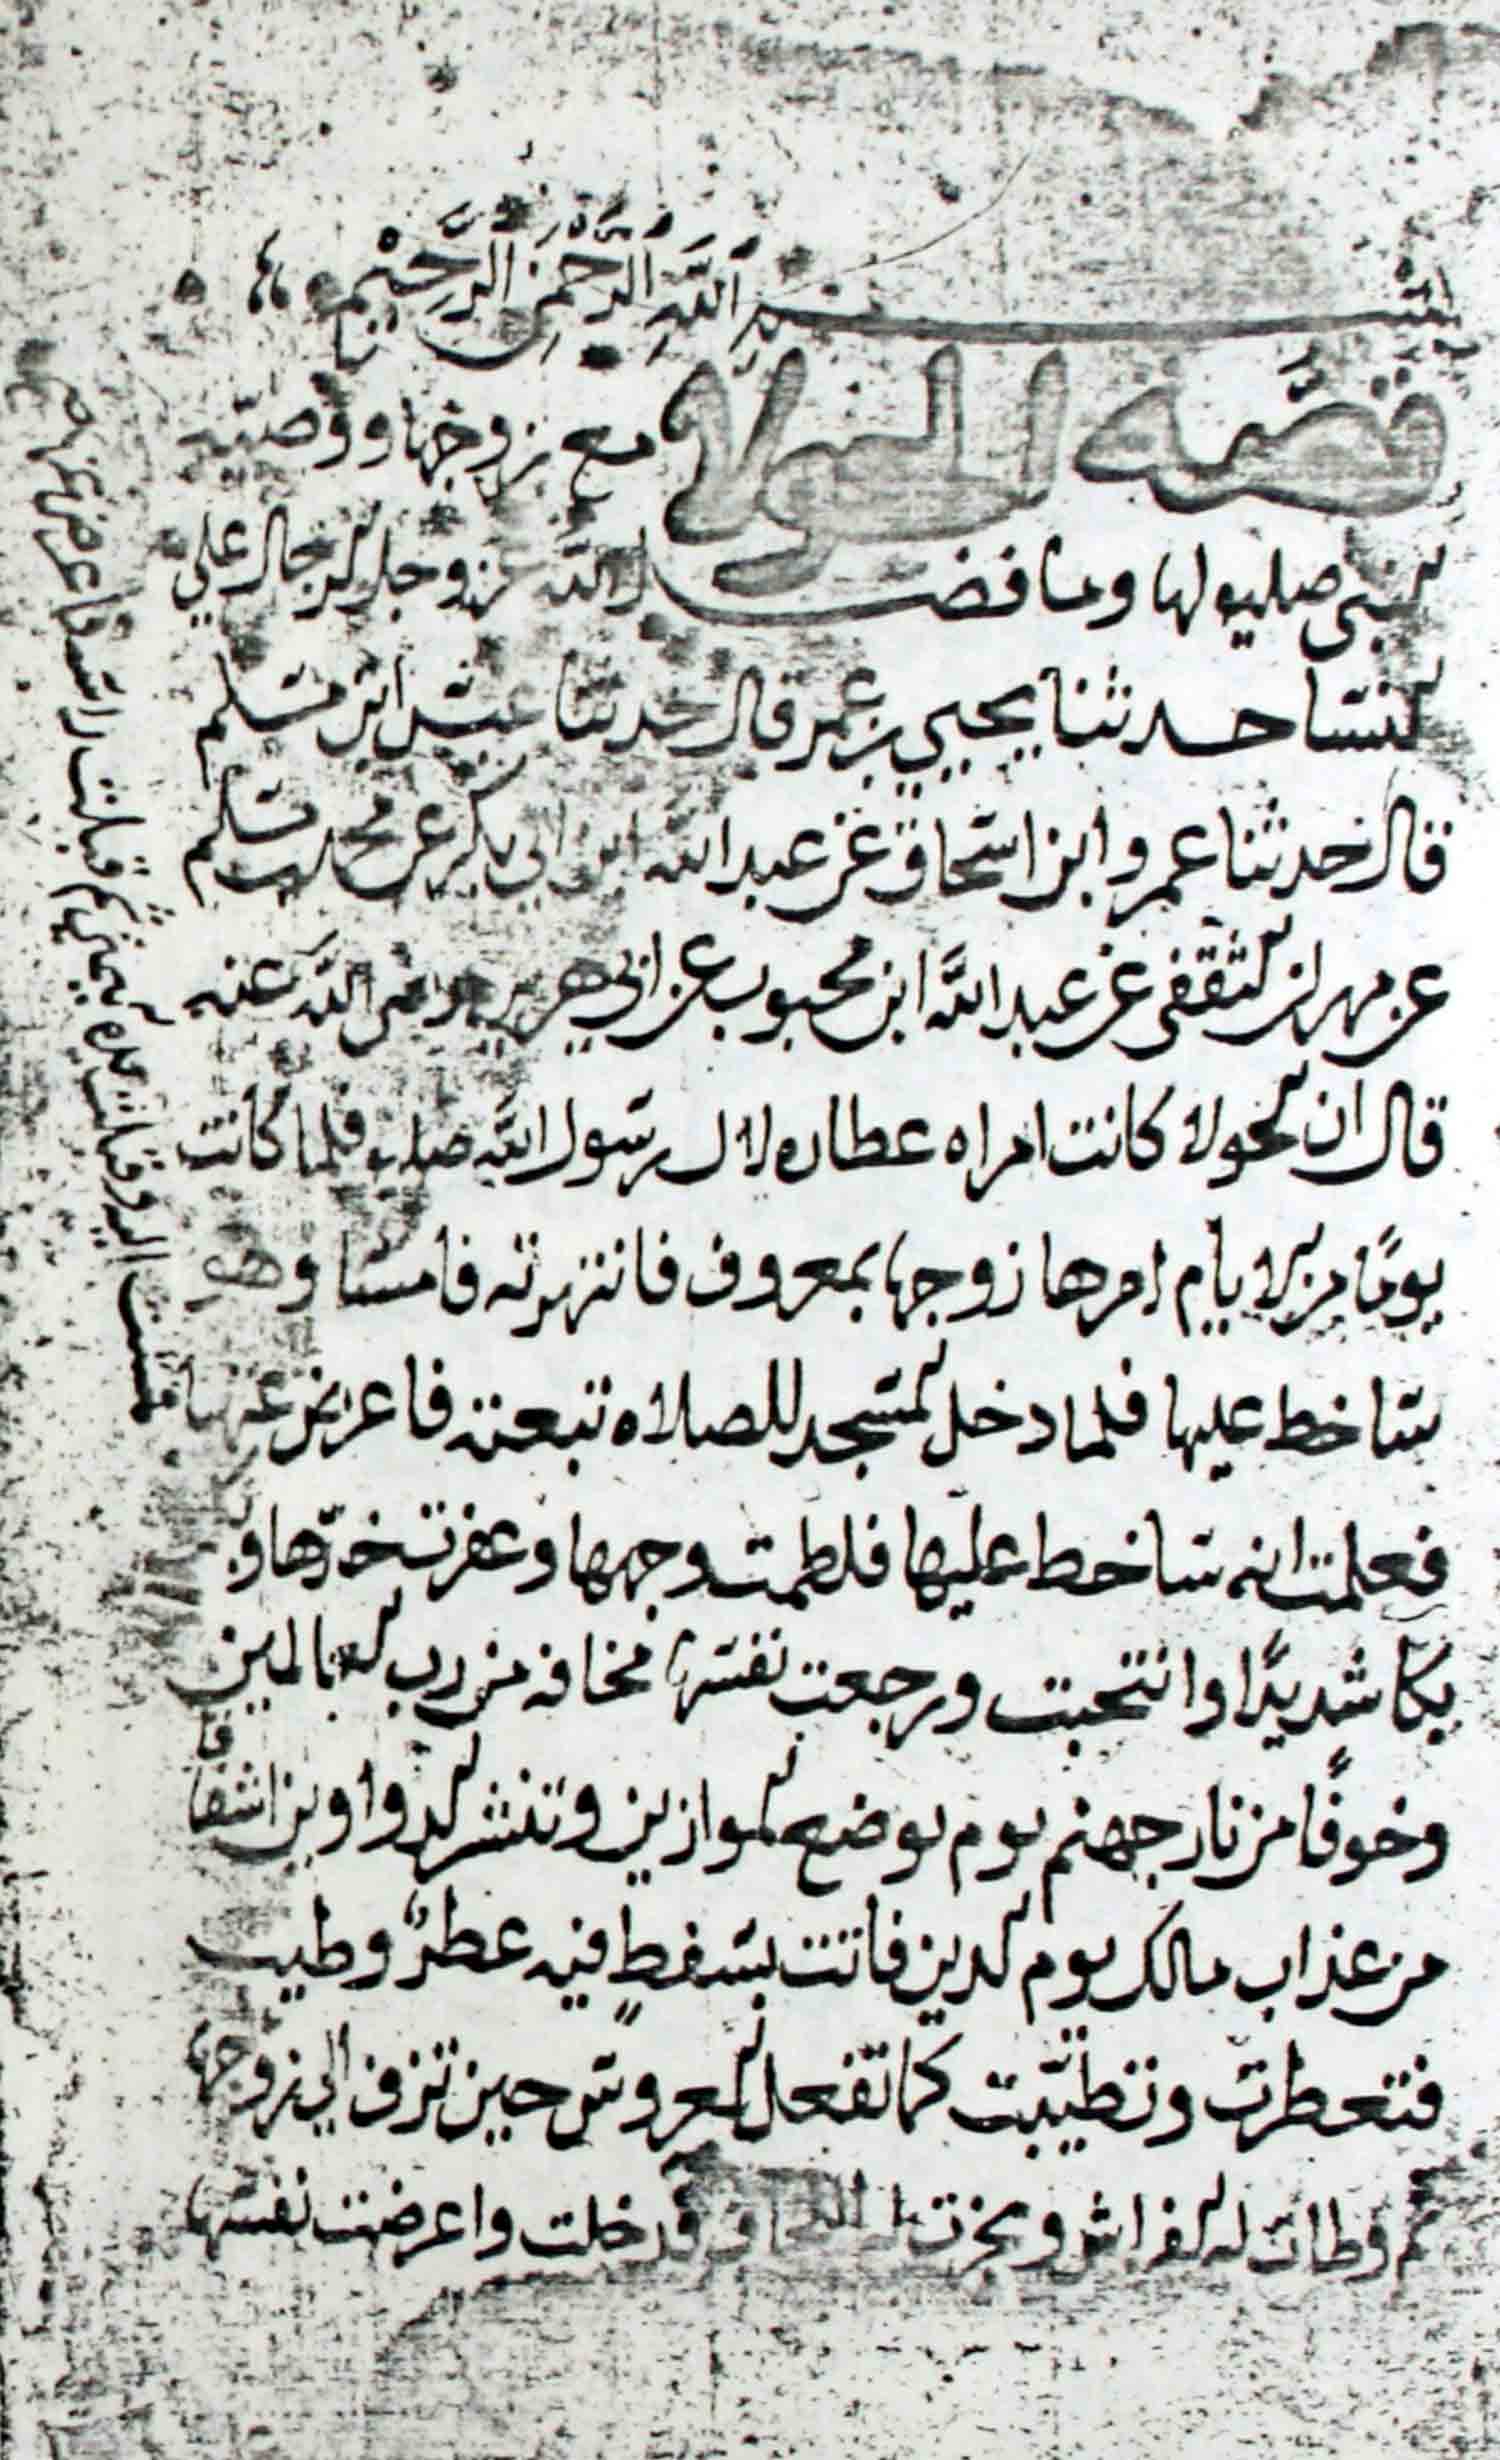 بِسْمِ اللَّهِ الرَّحْمَنِ الرَّحِيْمِ
قصَّة الحولا مع زوجها ووصيّة
النبي صلي ولها وما فضل الله عز وجل الرجال علي
النسا حدثنا يحيي بن عمر قال حدثنا ابن مسلم
قال حدثنا عمرو ابن اسحاق عن عبد الله ابن ابي بكر عن محمد مسلم
عن مهران الثقفي عن عبد اللَّه ابن محبوب عن ابي هريره رضي اللَّه عنه
قال ان الحولا كانت امراه عطاره لال رسول اللَّه صلي فلما كانت
يومًا من الايام امرها زوجها بمعروف فانتهرته فامسا وهو
ساخط عليها فلما دخل المسجد للصلاه تبعته فاعرض عنها
فعلمت انه ساخط عليها فلطمت وجهها وعفرت خدّها و
بكا شديدًا وانتحبت ورجعت نفسها مخافه من رب العالمين
وخوفًا من نار جهنم يوم يوضع الموازين وتنشر الدواوين اشفاقا
من عذاب مالك يوم الدين فاتت بسفطٍ فيه عطرٌ وطيب
فتعطرت وتطيّبت كما تفعل العروس حين تزف الي زوجها
ثم وطات له الفراش وبخرت اللحاف ودخلت واعرضت نفسها